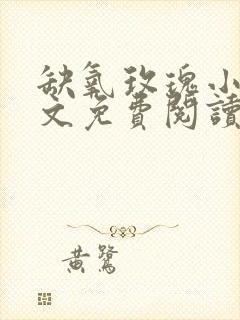 缺氧玫瑰小
文免費閱讀
黄鷺